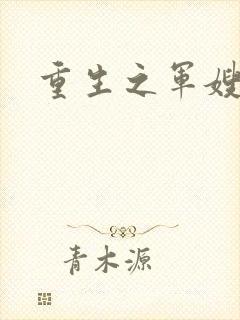 重生之军嫂
青木源